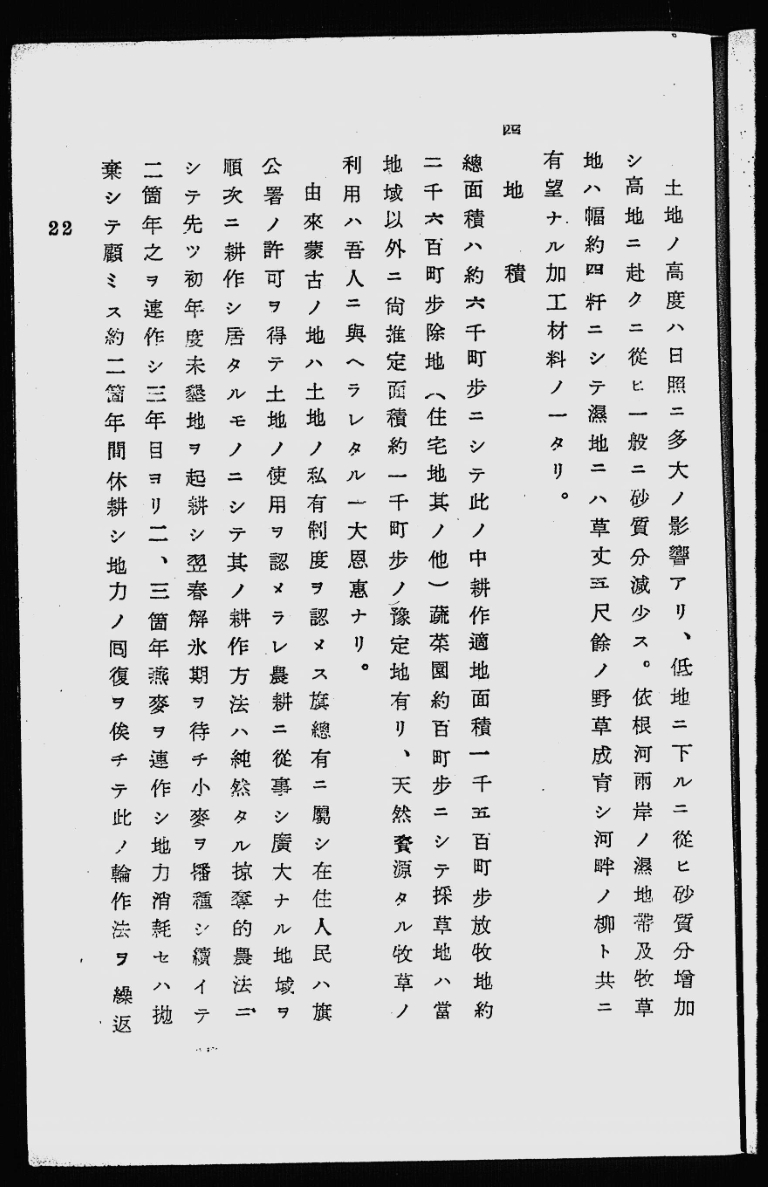 土地ノ高度ハ日照ニ多大ノ影響アリ、低地ニ下ルニ從ヒ砂質分增加
シ高地ニ赴クニ從ヒ一般ニ砂質分減少ス。依根河兩岸ノ濕地帶及牧草
地ハ幅約四粁ニシテ濕地ニハ草丈五尺餘ノ野草成育シ河畔ノ柳ト共ニ
有望ナル加工材料ノ一タリ。
四　地　積
總面積ハ約六千町步ニシテ此ノ中耕作適地面積一千五百町步放牧地約
二千六百町步除地（住宅地其ノ他）蔬菜園約百町步ニシテ採草地ハ當
地域以外ニ尙推定面積約一千町步ノ豫定地有リ、天然資源タル牧草ノ
利用ハ吾人ニ與ヘラレタル一大恩惠ナリ。
由來蒙古ノ地ハ土地ノ私有制度ヲ認メス旗總有ニ屬シ在住人民ハ旗
公署ノ許可ヲ得テ土地ノ使用ヲ認メラレ農耕ニ從事シ廣大ナル地域ヲ
順次ニ耕作シ居タルモノニシテ其ノ耕作方法ハ純然タル掠奪的農法ニ
シテ先ツ初年度未墾地ヲ起耕シ翌春解氷期ヲ待チ小麥ヲ播種シ續イテ
二箇年之ヲ連作シ三年目ヨリ二、三箇年燕麥ヲ連作シ地力消耗セハ拋
棄シテ顧ミス約二箇年間休耕シ地力ノ囘復ヲ俟チテ此ノ輪作法ヲ繰返
22